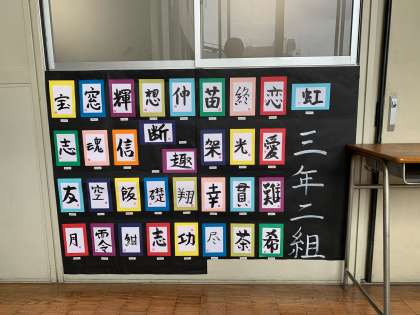 宝 窓 輝 想 伸 苗 終 恋 虹
志 魂 信 断 趣 架 光 愛
友 空 飯 礎 翔 幸 貫 難
月 零 紺 志 功 尽 茶 希
三年二組